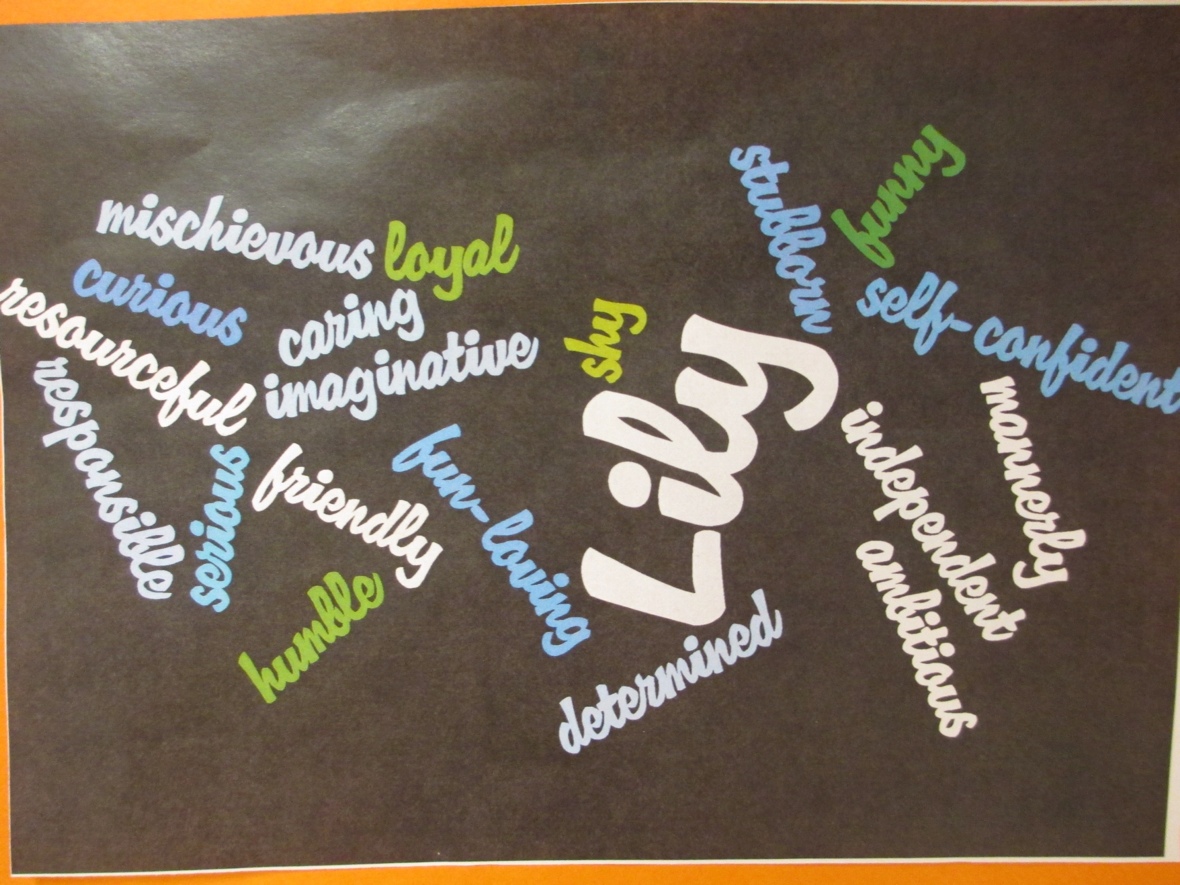 mischievous
loyal
curious
caring
resourceful
imaginative
responsible
serious
friendly
humble
fun-loving
shy
Lily
determined
stubborn
funny
self-confident
mannerly
independent
ambitious